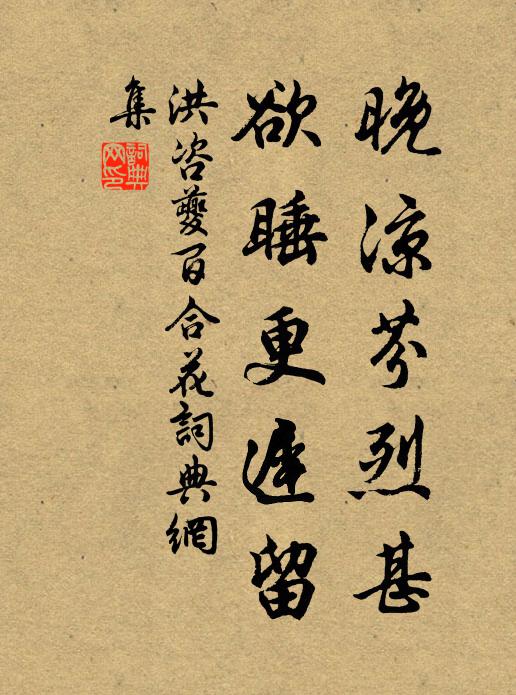 晚涼芬烈甚
欲睡更遲留
洪咨夔百合花詞典網
集
詞典網印